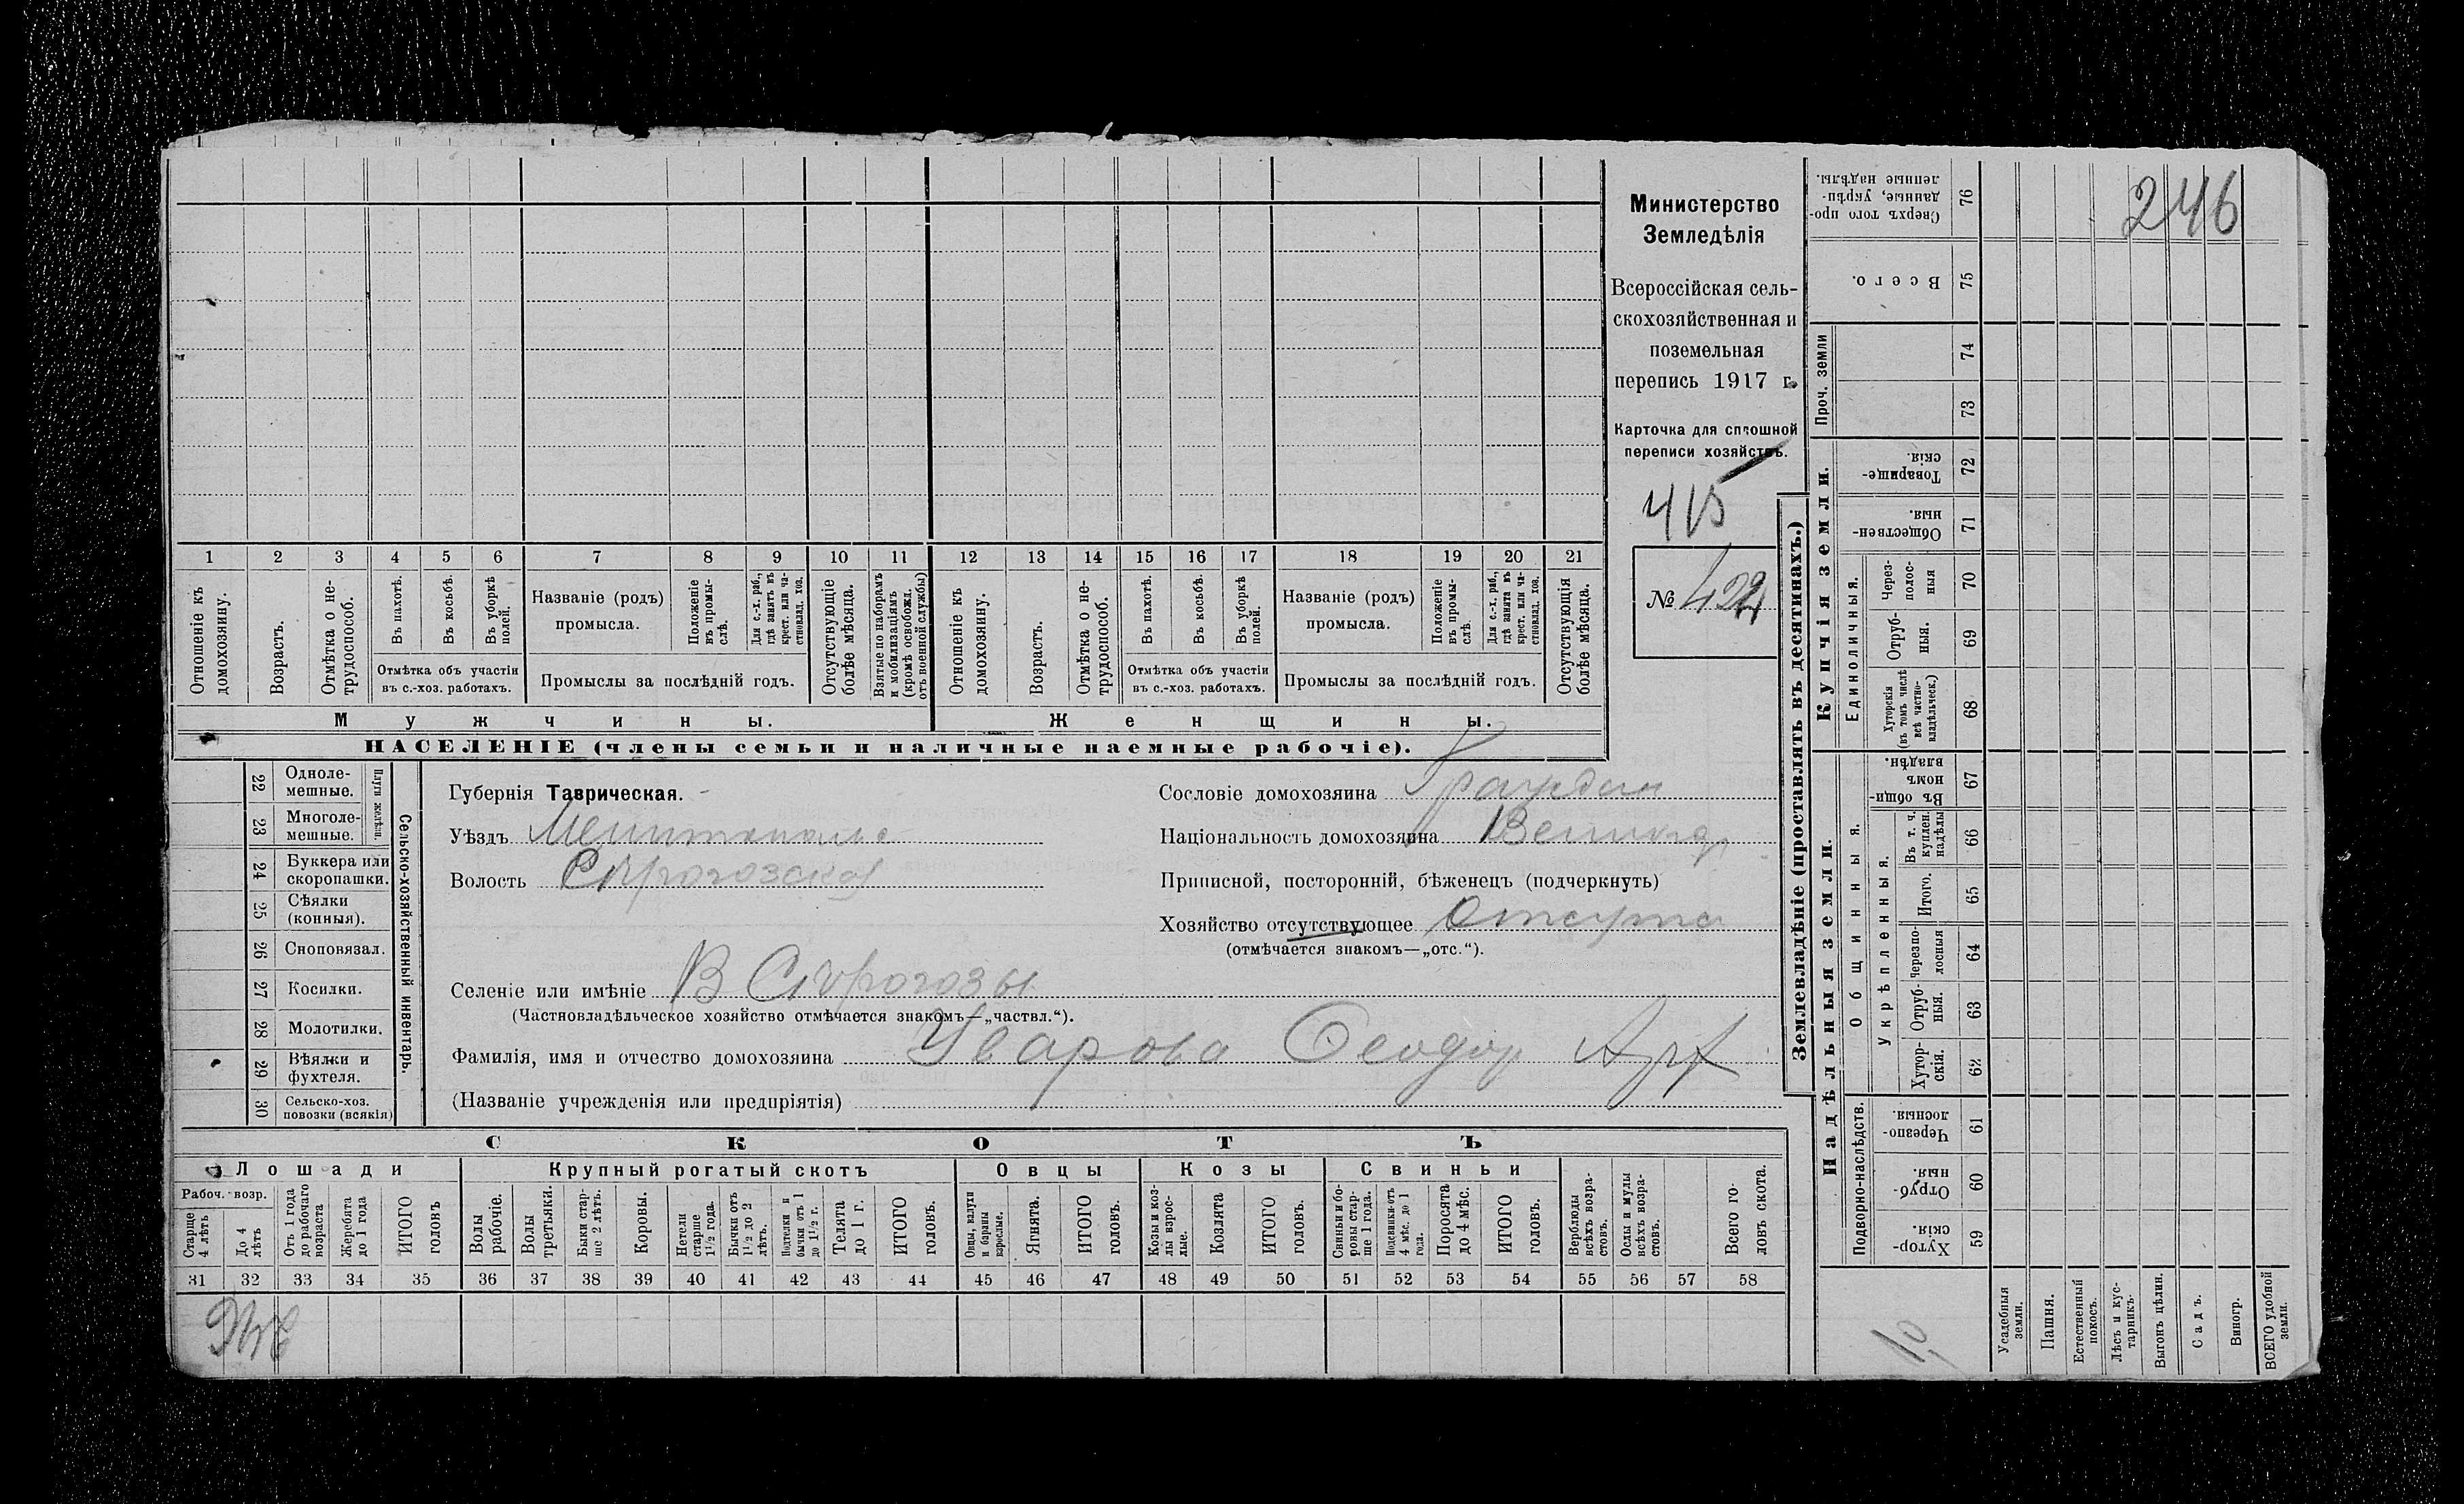 1 2 3 4 5 6 7 8 9 10 11 12 13 14 15 16 17 18 19 20 21
Отношеніе къ домохозяину.
Возрастъ.
Отмѣтка о не-
трудоспособ.
Въ пахотѣ.
Въ косьбѣ.
Въ уборкѣ
полей.
Отмѣтка объ участіи
въ с.-хоз. работахъ.
Названіе (родъ)
промысла.
Положеніе
въ промы-
слѣ.
Для с.-х. раб.,
гдѣ занятъ въ
крест. или ча-
стновлад. хоз.
Промыслы за послѣдній годъ.
Отсутствующіе
болѣе мѣсяца.
Взятые по наборамъ
и мобилизаціямъ
(кромѣ освобожд.
отъ военной службы)
Отношеніе къ
домохозяину.
Возрастъ.
Отмѣтка о не-
трудоспособ.
Въ пахотѣ.
Въ косьбѣ.
Въ уборкѣ
полей.
Отмѣтка объ участіи
въ с.-хоз. работахъ.
Названіе (родъ)
промысла.
Положеніе
въ промы-
слѣ.
Для с.-х. раб.,
гдѣ занята въ
крест. или ча-
стновлад. хоз.
Промыслы за послѣдній годъ.
Отсутствующія
болѣе мѣсяца.
Мужчины. Женщины.
НАСЕЛЕНІЕ (члены семьи и наличные наемные рабочіе).
Министерство
Земледѣлія
Всероссійская сель-
скохозяйственная и
поземельная
перепись 1917 г.
Карточка для сплошной
переписи хозяйствъ.
415
№ 424
22 Одноле-
мешные.
23 Многоле-
мешные.
Плуги желѣзн.
24 Буккера или
скоропашки.
25 Сѣялки
(конныя).
26 Сноповязал.
27 Косилки.
28 Молотилки.
29 Вѣялки и
фухтеля.
30 Сельско-хоз.
повозки (всякія)
Сельско-хозяйственный инвентарь.
Губернія Таврическая.
Уѣздъ
Волость
Селеніе или имѣніе В
(Частновладѣльческое хозяйство отмѣчается знакомъ—„частвл.“).
Фамилія, имя и отчество домохозяина Уварова Ѳеодор
(Названіе учрежденія или предпріятія)
Сословіе домохозяина
Національность домохозяина
Приписной, посторонній, бѣженецъ (подчеркнуть)
Хозяйство отсутствующее
(отмѣчается знакомъ—„отс.“).
СКОТЪ
Лошади Крупный рогатый скотъ Овцы Козы Свиньи
Рабоч. возр.
Старше
4 лѣтъ
До 4
лѣтъ
Отъ 1 года
до рабочаго
возраста
Жеребята
до 1 года
ИТОГО
головъ
Волы
рабочіе.
Волы
третьяки.
Быки стар-
ше 2 лѣтъ.
Коровы.
Нетели
старше
1½ года.
Бычки отъ
1½ до 2
лѣтъ.
Подтелки и
бычки отъ 1
до 1½ г.
Телята
до 1 г.
ИТОГО
головъ.
Овцы, валухи
и бараны
взрослые.
Ягнята.
ИТОГО
головъ.
Козы и коз-
лы взрос-
лые.
Козлята
ИТОГО
головъ.
Свиньи и бо-
ровы стар-
ше 1 года.
Подсвинки отъ
4 мѣс. до 1
года.
Поросята
до 4 мѣс.
ИТОГО
головъ.
Верблюды
всѣхъ возра-
стовъ.
Ослы и мулы
всѣхъ возра-
стовъ.
Всего го-
ловъ скота.
31 32 33 34 35 36 37 38 39 40 41 42 43 44 45 46 47 48 49 50 51 52 53 54 55 56 57 58
Землевладѣніе (проставлять въ десятинахъ.)
Надѣльныя земли. Купчія земли.
Проч. земли
Подворно-наслѣдств.
Общинныя.
Укрѣпленныя.
Единоличныя.
Сверхъ того про-
данные, укрѣп-
ленные надѣлы.
76
Всего.
75
74
73
Товарище-
скія.
72
Обществен-
ныя.
71
Через-
полос-
ныя
70
Отруб-
ныя.
69
Хуторскія
(въ томъ числѣ
всѣ частно-
владѣльческ.)
68
Въ общи
номъ
владѣн.
67
Въ т. ч.
куплен.
надѣлы
66
Итого.
65
Черезпо-
лосныя
64
Отруб-
ныя.
63
Хутор-
скія.
62
Черезпо-
лосныя
61
Отруб-
ныя.
60
Хутор-
скія.
59
Усадебныя
земли.
Пашня.
Естественный
покосъ.
Лѣсъ и кус-
тарникъ.
Выгонъ цѣлин.
Садъ.
Виногр.
ВСЕГО удобной
земли.
246